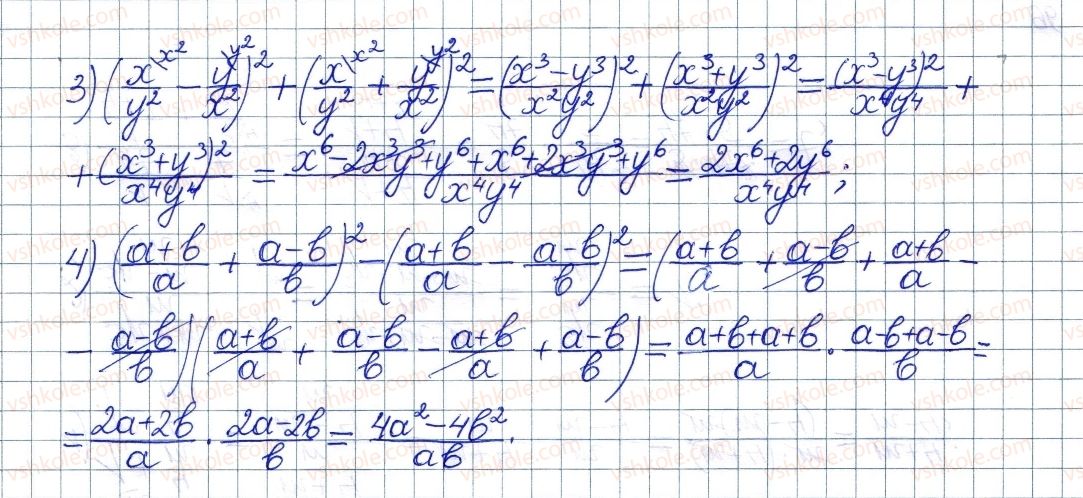 3) (x\x²/y² − y\y²/x²)² + (x\x²/y² + y\y²/x²)² = (x³−y³/x²y²)² + (x³+y³/x²y²)² = (x³−y³)²/x⁴y⁴ +
+ (x³+y³)²/x⁴y⁴ = x⁶−2x³y³+y⁶+x⁶+2x³y³+y⁶/x⁴y⁴ = 2x⁶+2y⁶/x⁴y⁴;
4) (a+b/a + a−b/b)² − (a+b/a − a−b/b)² = (a+b/a + a−b/b + a+b/a −
− a−b/b)(a+b/a + a−b/b − a+b/a + a−b/b) = a+b+a+b/a · a−b+a−b/b =
= 2a+2b/a · 2a−2b/b = 4a²−4b²/ab.